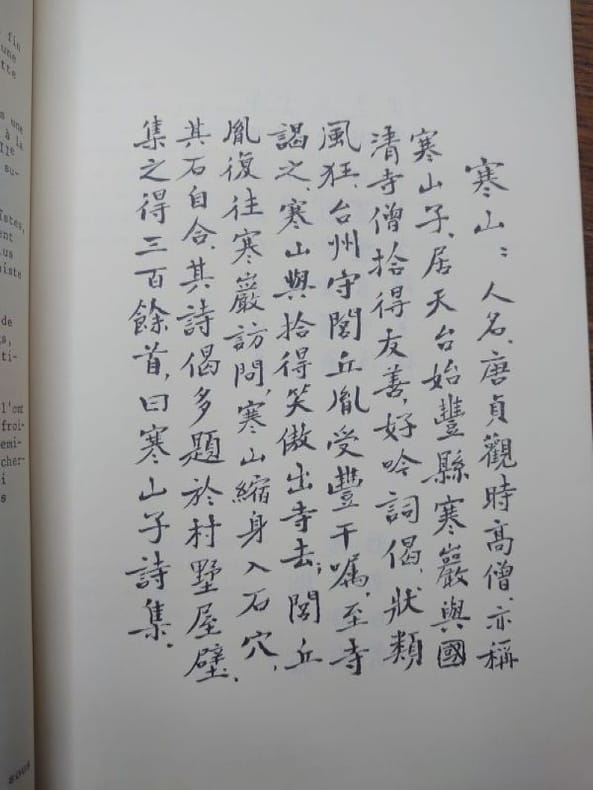 fin
une
une
à la
su-
de
l'ont
froi-
cher-
寒山：人名、唐貞觀時高僧、亦稱
寒山子、居天台始豐縣寒巖與國
清寺僧拾得友善，好吟詞偈、狀類
風狂、台州守閭丘胤受豐干囑、至寺
謁之、寒山與拾得笑傲出寺去；閭丘
胤復往寒巖訪問，寒山縮身入石穴、
其石自合、其詩偈多題於村墅屋壁、
集之得三百餘首，曰寒山子詩集、